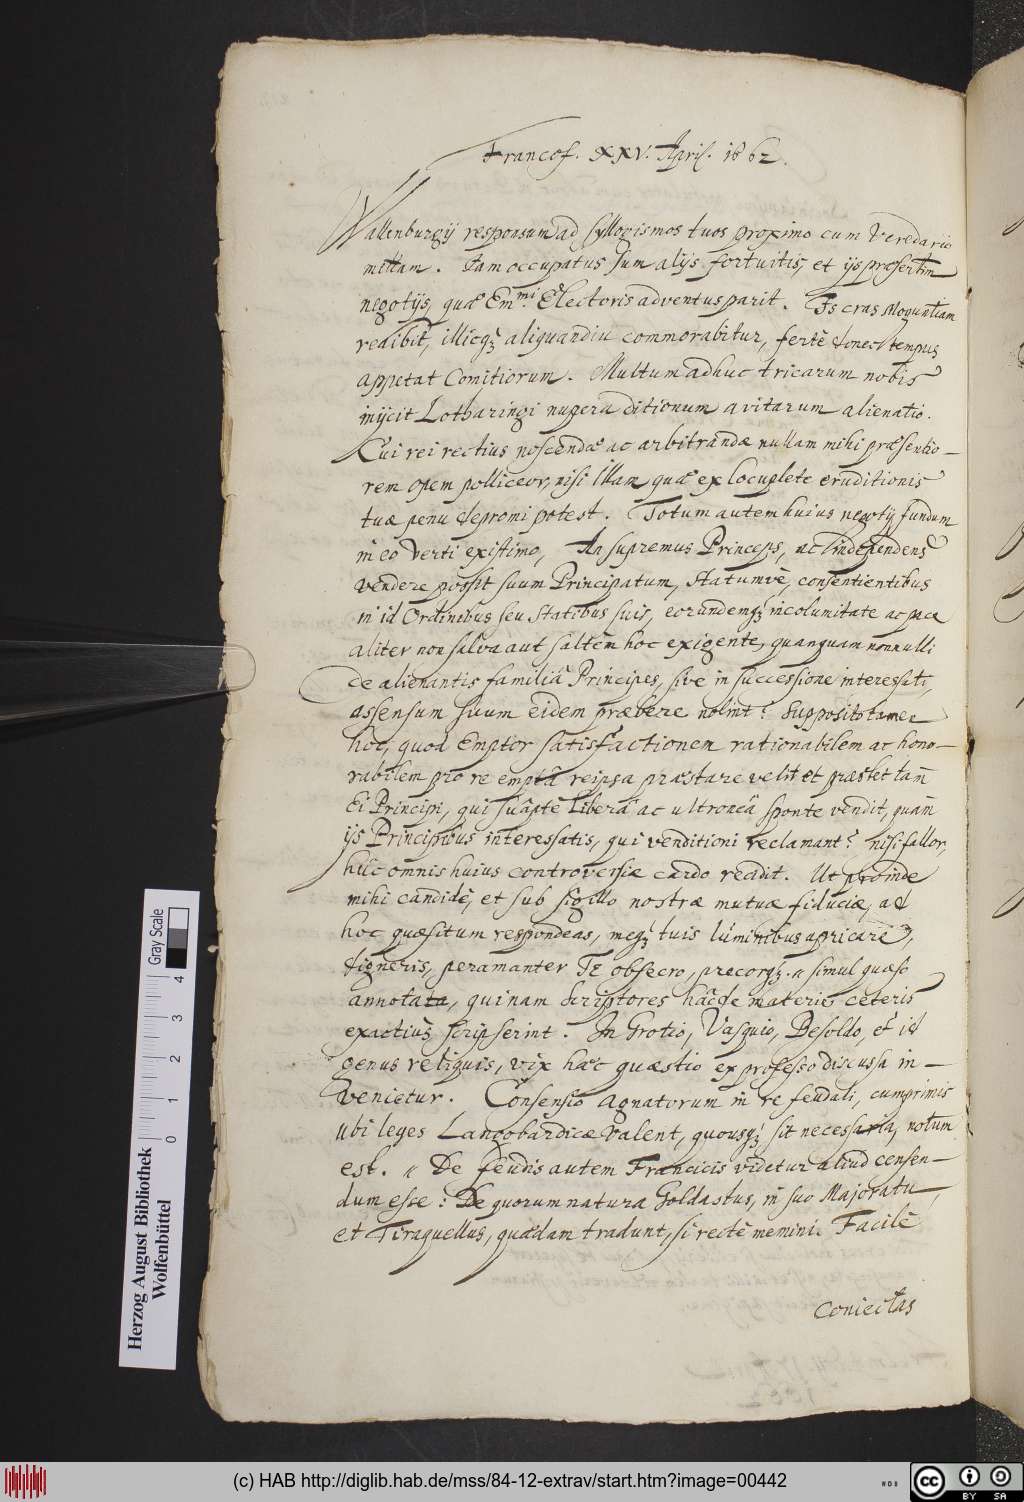 Francof. XXV. April. 1662.
Wallenburgij responsum ad syllogismos tuos proximo cum Veredario
mittam. Iam occupatus sum alijs fortuitis, et ijs præsertim
negotijs, quæ Em.mi Electoris adventus parit. Is cras Moguntiam
redibit, illicq; aliquandiu commorabitur, fertè donec tempus
appetat Comitiorum. Multum adhuc tricarum nobis
inijcit Lotharingi nupera ditionum avitarum alienatio.
Cui rei rectius noscendæ ac arbitrandæ nullam mihi præsentio-
rem opem polliceor, nisi Illam, quæ ex locuplete eruditionis
tuæ penu depromi potest. Totum autem huius negotij fundum
in eo verti existimo, An supremus Princeps, ac independens
vendere possit suum Principatum, Statumvè, consentientibus
in id Ordinibus seu Statibus suis, eorundemq; incolumitate ac pace
aliter non salva aut saltèm hoc exigente, quanquam nonnulli
de alienantis familiâ Principes, sive in successione interessati,
assensum suum eidem præbere nolint? Supposito tamen
hoc, quod Emptor satisfactionem rationabilem ac hono-
rabilem pro re emptâ reipsa præstare velit et præstet tàm
Ei Principi, qui suâpte liberâ ac ultroneâ sponte vendit, quàm
ijs Principibus interessatis, qui venditioni reclamant? nisi fallor,
hûc omnis huius controversiæ cardo readit. Ut proinde
mihi candidè, et sub sigillo nostræ mutuæ fiduciæ, ad
hoc quæsitum respondeas, meq; tuis luminibus apricare
digneris, peramanter TE obsecro, precorq; simul quæso
annota, quinam Scriptores hâc de materiê ceteris
exactiùs scripserint. In Grotio, Vasquio, Besoldo, et id
genus reliquis, vix hæc quæstio ex professo discussa in-
venietur. Consensio Agnatorum in re feudali, cumprimis
ubi leges Langobardicæ valent, quousq; sit necessaria, notum
est. De feudis autem Francicis videtur aliud censen-
dum esse: De quorum natura Goldastus, in suo Majoratu,
et Tiraquellus, quædam tradunt, si rectè memini. Facilè
coniectas
Herzog August Bibliothek
Wolfenbüttel
0 1 2 3 4
Gray Scale
(c) HAB http://diglib.hab.de/mss/84-12-extrav/start.htm?image=00442
cc BY SA